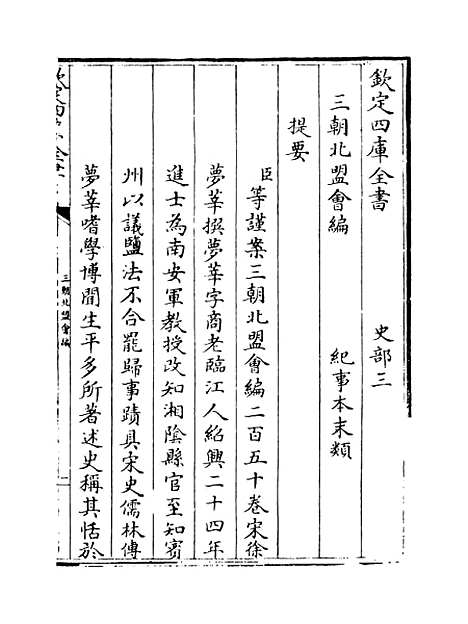 欽定四庫全書　史部三
三朝北盟會編　紀事本末類
提要
臣等謹案三朝北盟會編二百五十卷宋徐
夢莘撰夢莘字商老臨江人紹興二十四年
進士為南安軍教授改知湘隂縣官至知賓
州以議鹽法不合罷歸事蹟具宋史儒林傳
夢莘嗜學博聞生平多所著述史稱其恬於
三朝北盟會編